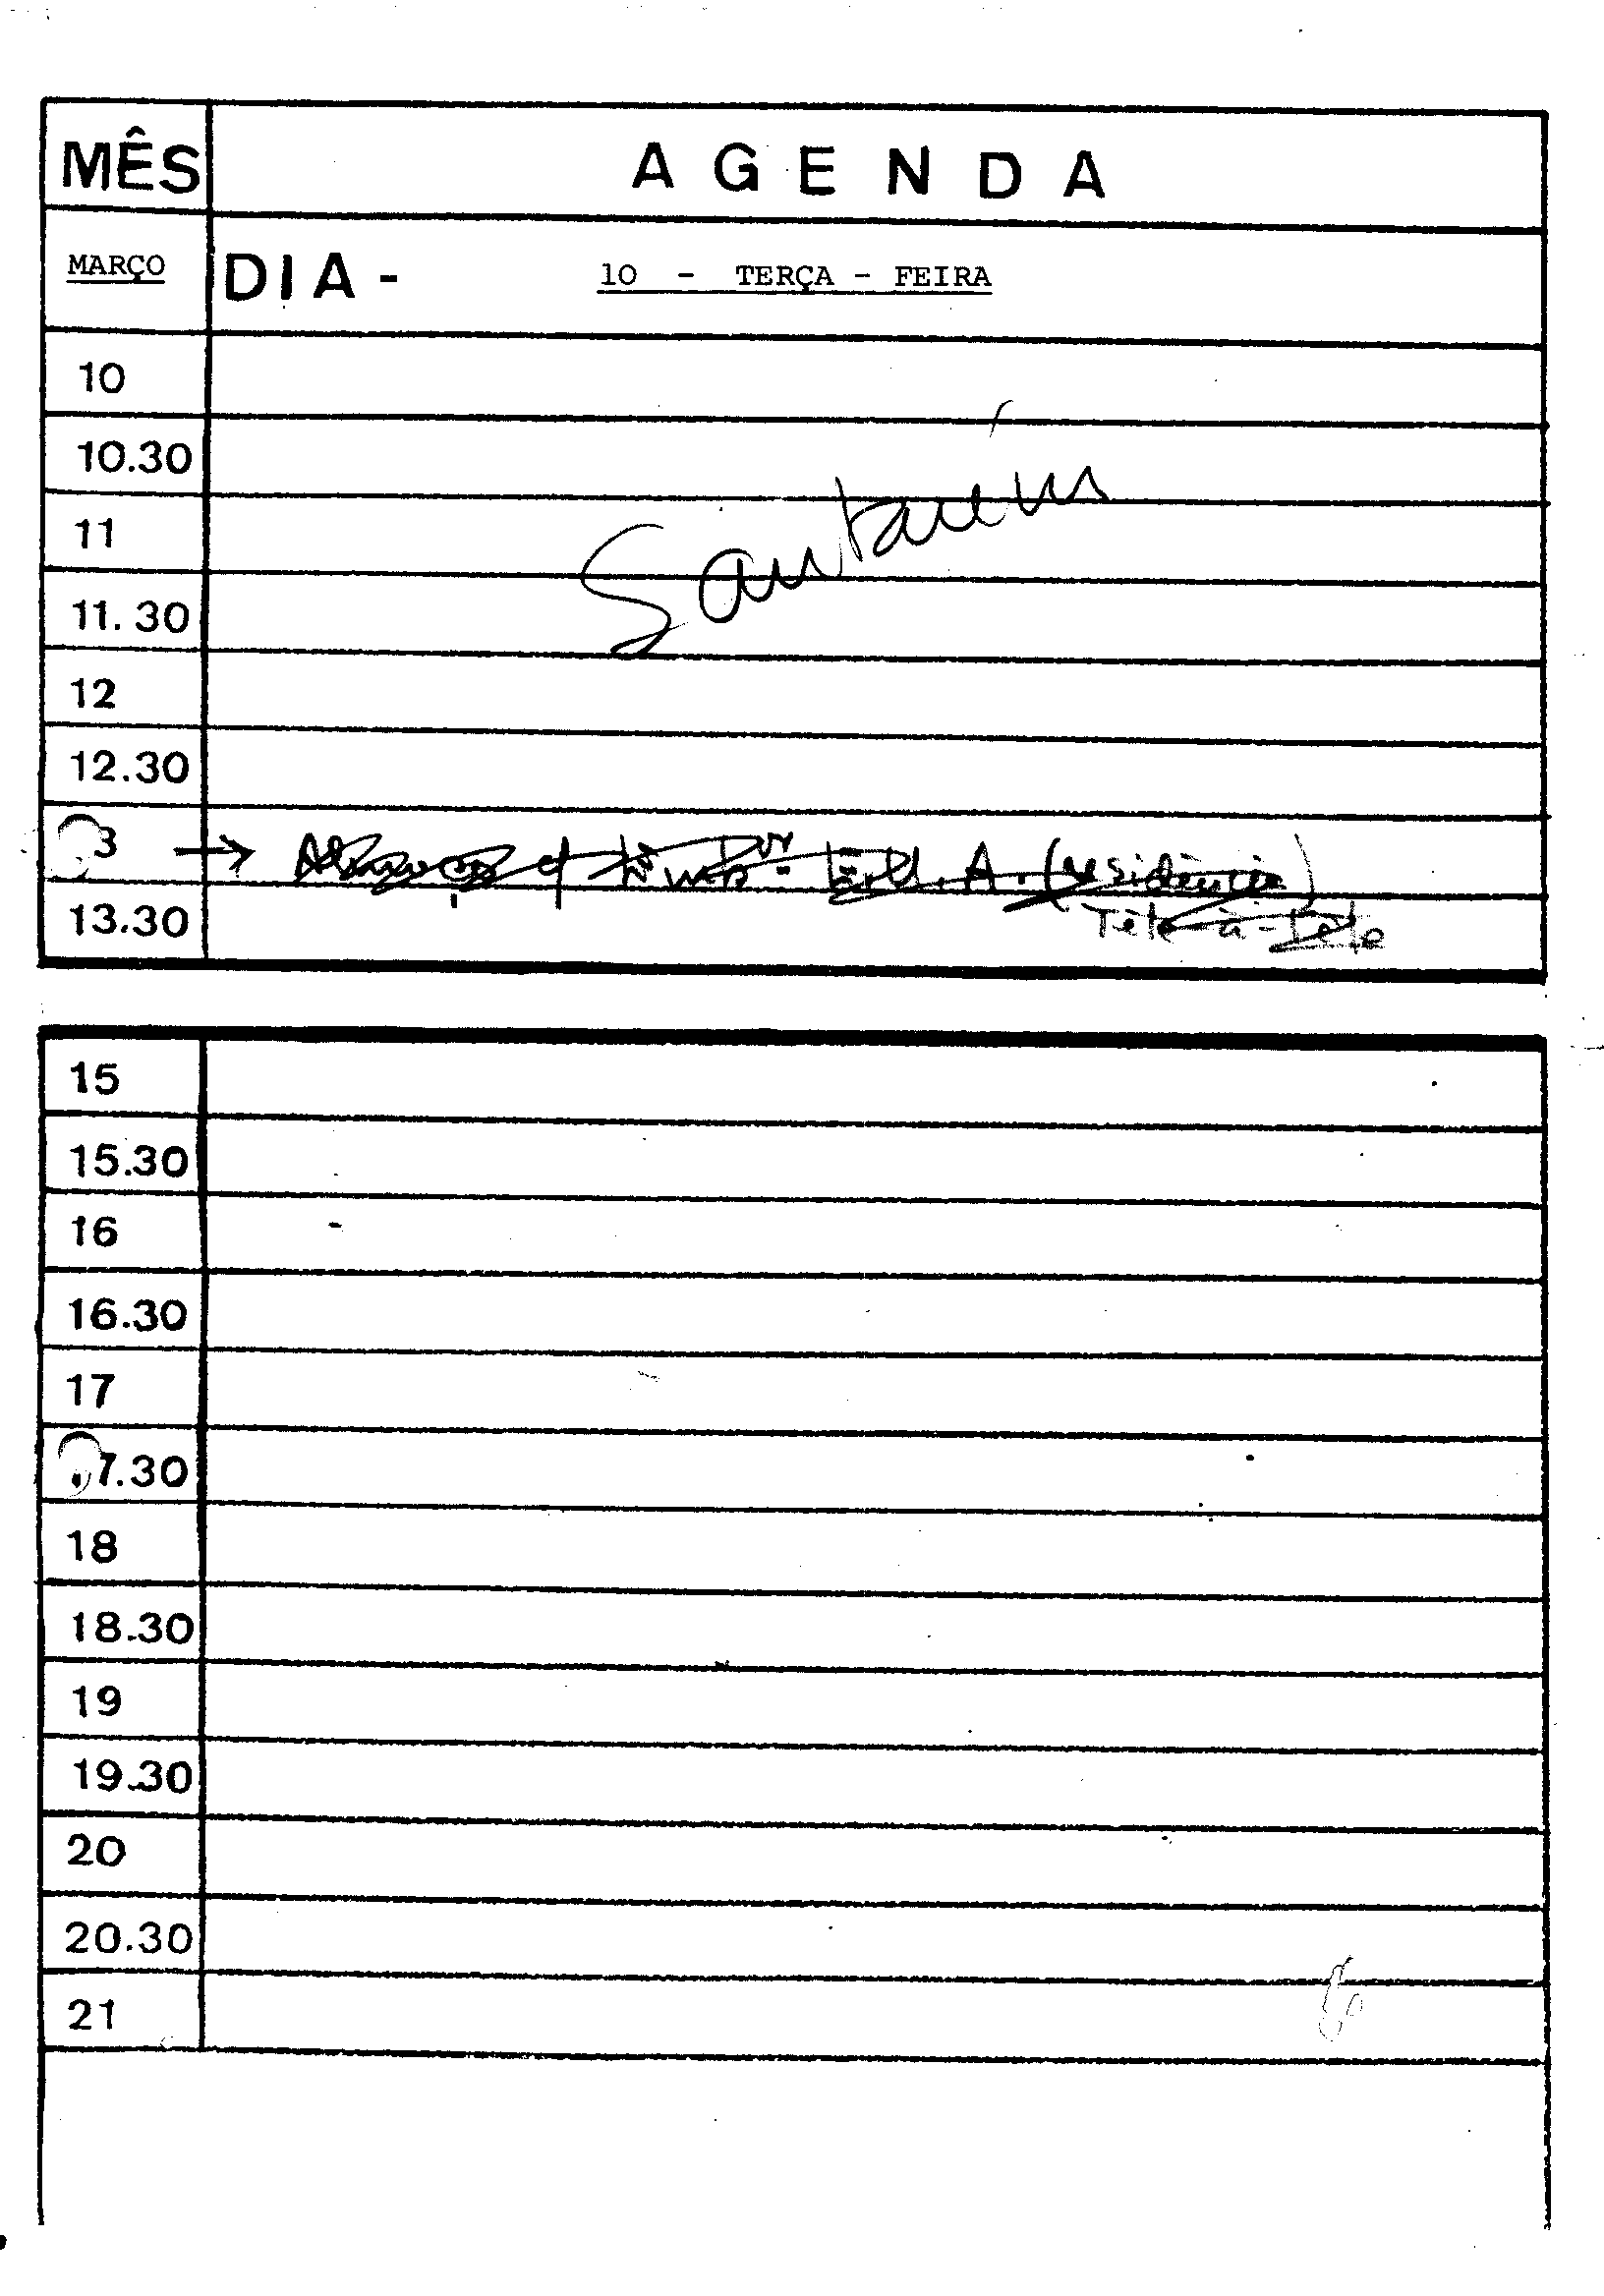 MÊS AGENDA
MARÇO DIA - 10 - TERÇA - FEIRA
10
10.30
Santarém
11
11.30
12
12.30
3 → Almoço c/ Emb.or E.U.A. (residência)
13.30 Tête-à-Tête
15
15.30
16
16.30
17
7.30
18
18.30
19
19.30
20
20.30
21